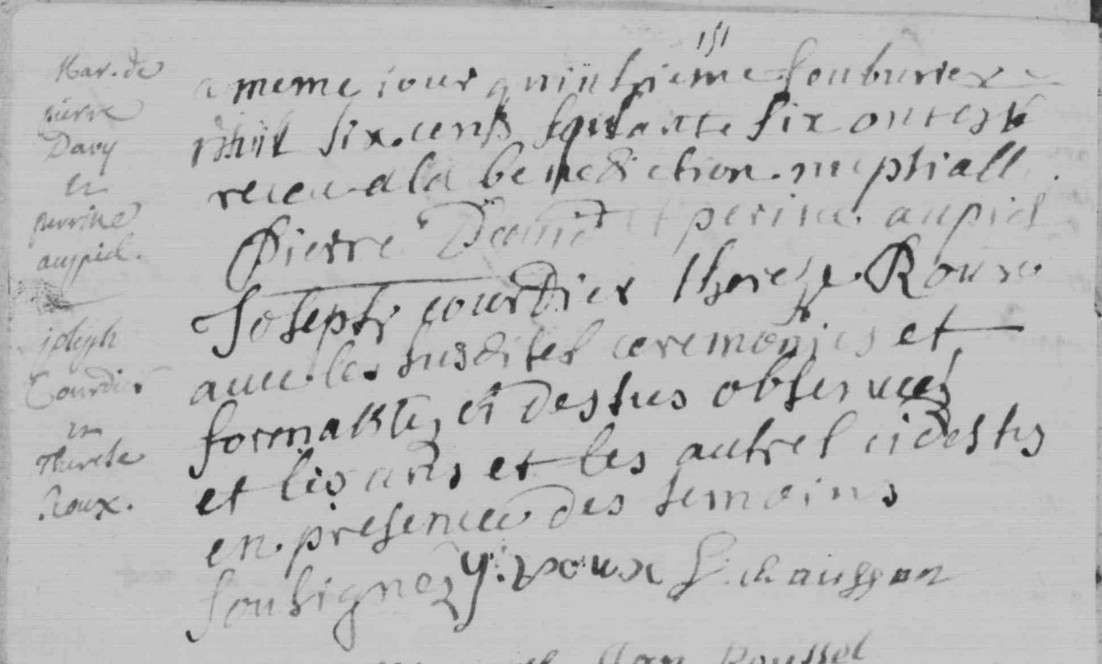 151
Mar. de
pierre
Davy
et
perrine
aupiel.
joseph
Courdier
et
Therese
Roux.
meme jour quinzieme
six cens six ont
receu la benediction nuptiall
Pierre David et perine aupiel
Joseph courdier thereze Roux
avec les susdites ceremonies et
formalités ci dessus observees
et les autres ci dessus
en presence des temoins
sousignez roux
Roussel